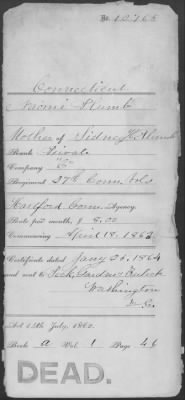 No. 12,765
Connecticut
Naomi Plumb
Mother of Sidney H. Plumb
Rank Private
Company "C"
Regiment 27th Conn. Vols
Hartford Conn. Agency.
Rate per month, $ 8.00
Commencing April 18, 1863
Certificate dated Jany 26, 1864
and sent to
Washington
D.C.
Act 14th July, 1862.
Book a Vol. 1 Page 46
DEAD.